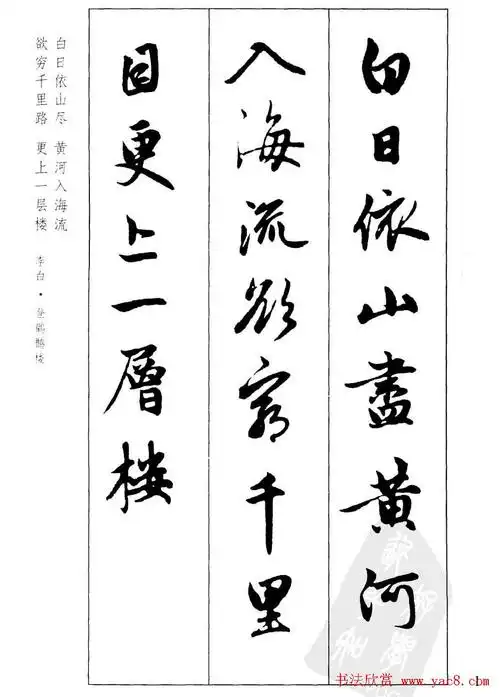 白日依山盡黄河
入海流欲窮千里
目更上一層楼
白日依山尽 黄河入海流
欲穷千里路 更上一层楼
李白·登鹳鹊楼
书法欣赏 www.yac8.com